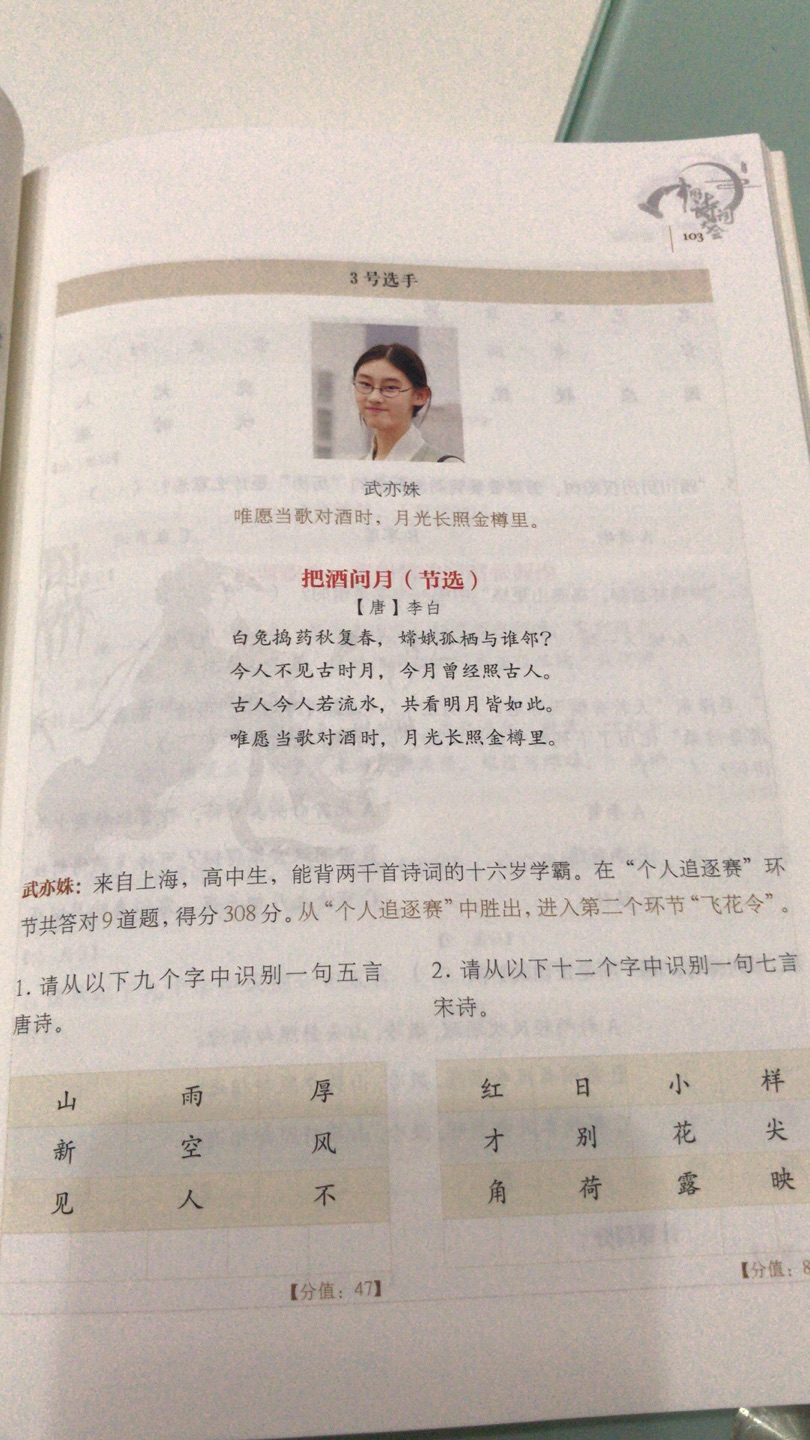 中国诗词大会
103
3号选手
武亦姝
唯愿当歌对酒时，月光长照金樽里。
把酒问月（节选）
【唐】李白
白兔捣药秋复春，嫦娥孤栖与谁邻？
今人不见古时月，今月曾经照古人。
古人今人若流水，共看明月皆如此。
唯愿当歌对酒时，月光长照金樽里。
武亦姝：来自上海，高中生，能背两千首诗词的十六岁学霸。在“个人追逐赛”环
节共答对9道题，得分308分。从“个人追逐赛”中胜出，进入第二个环节“飞花令”。
1. 请从以下九个字中识别一句五言
唐诗。
山 雨 厚
新 空 风
见 人 不
【分值：47】
2. 请从以下十二个字中识别一句七言
宋诗。
红 日 小 样
才 别 花 尖
角 荷 露 映
【分值：8